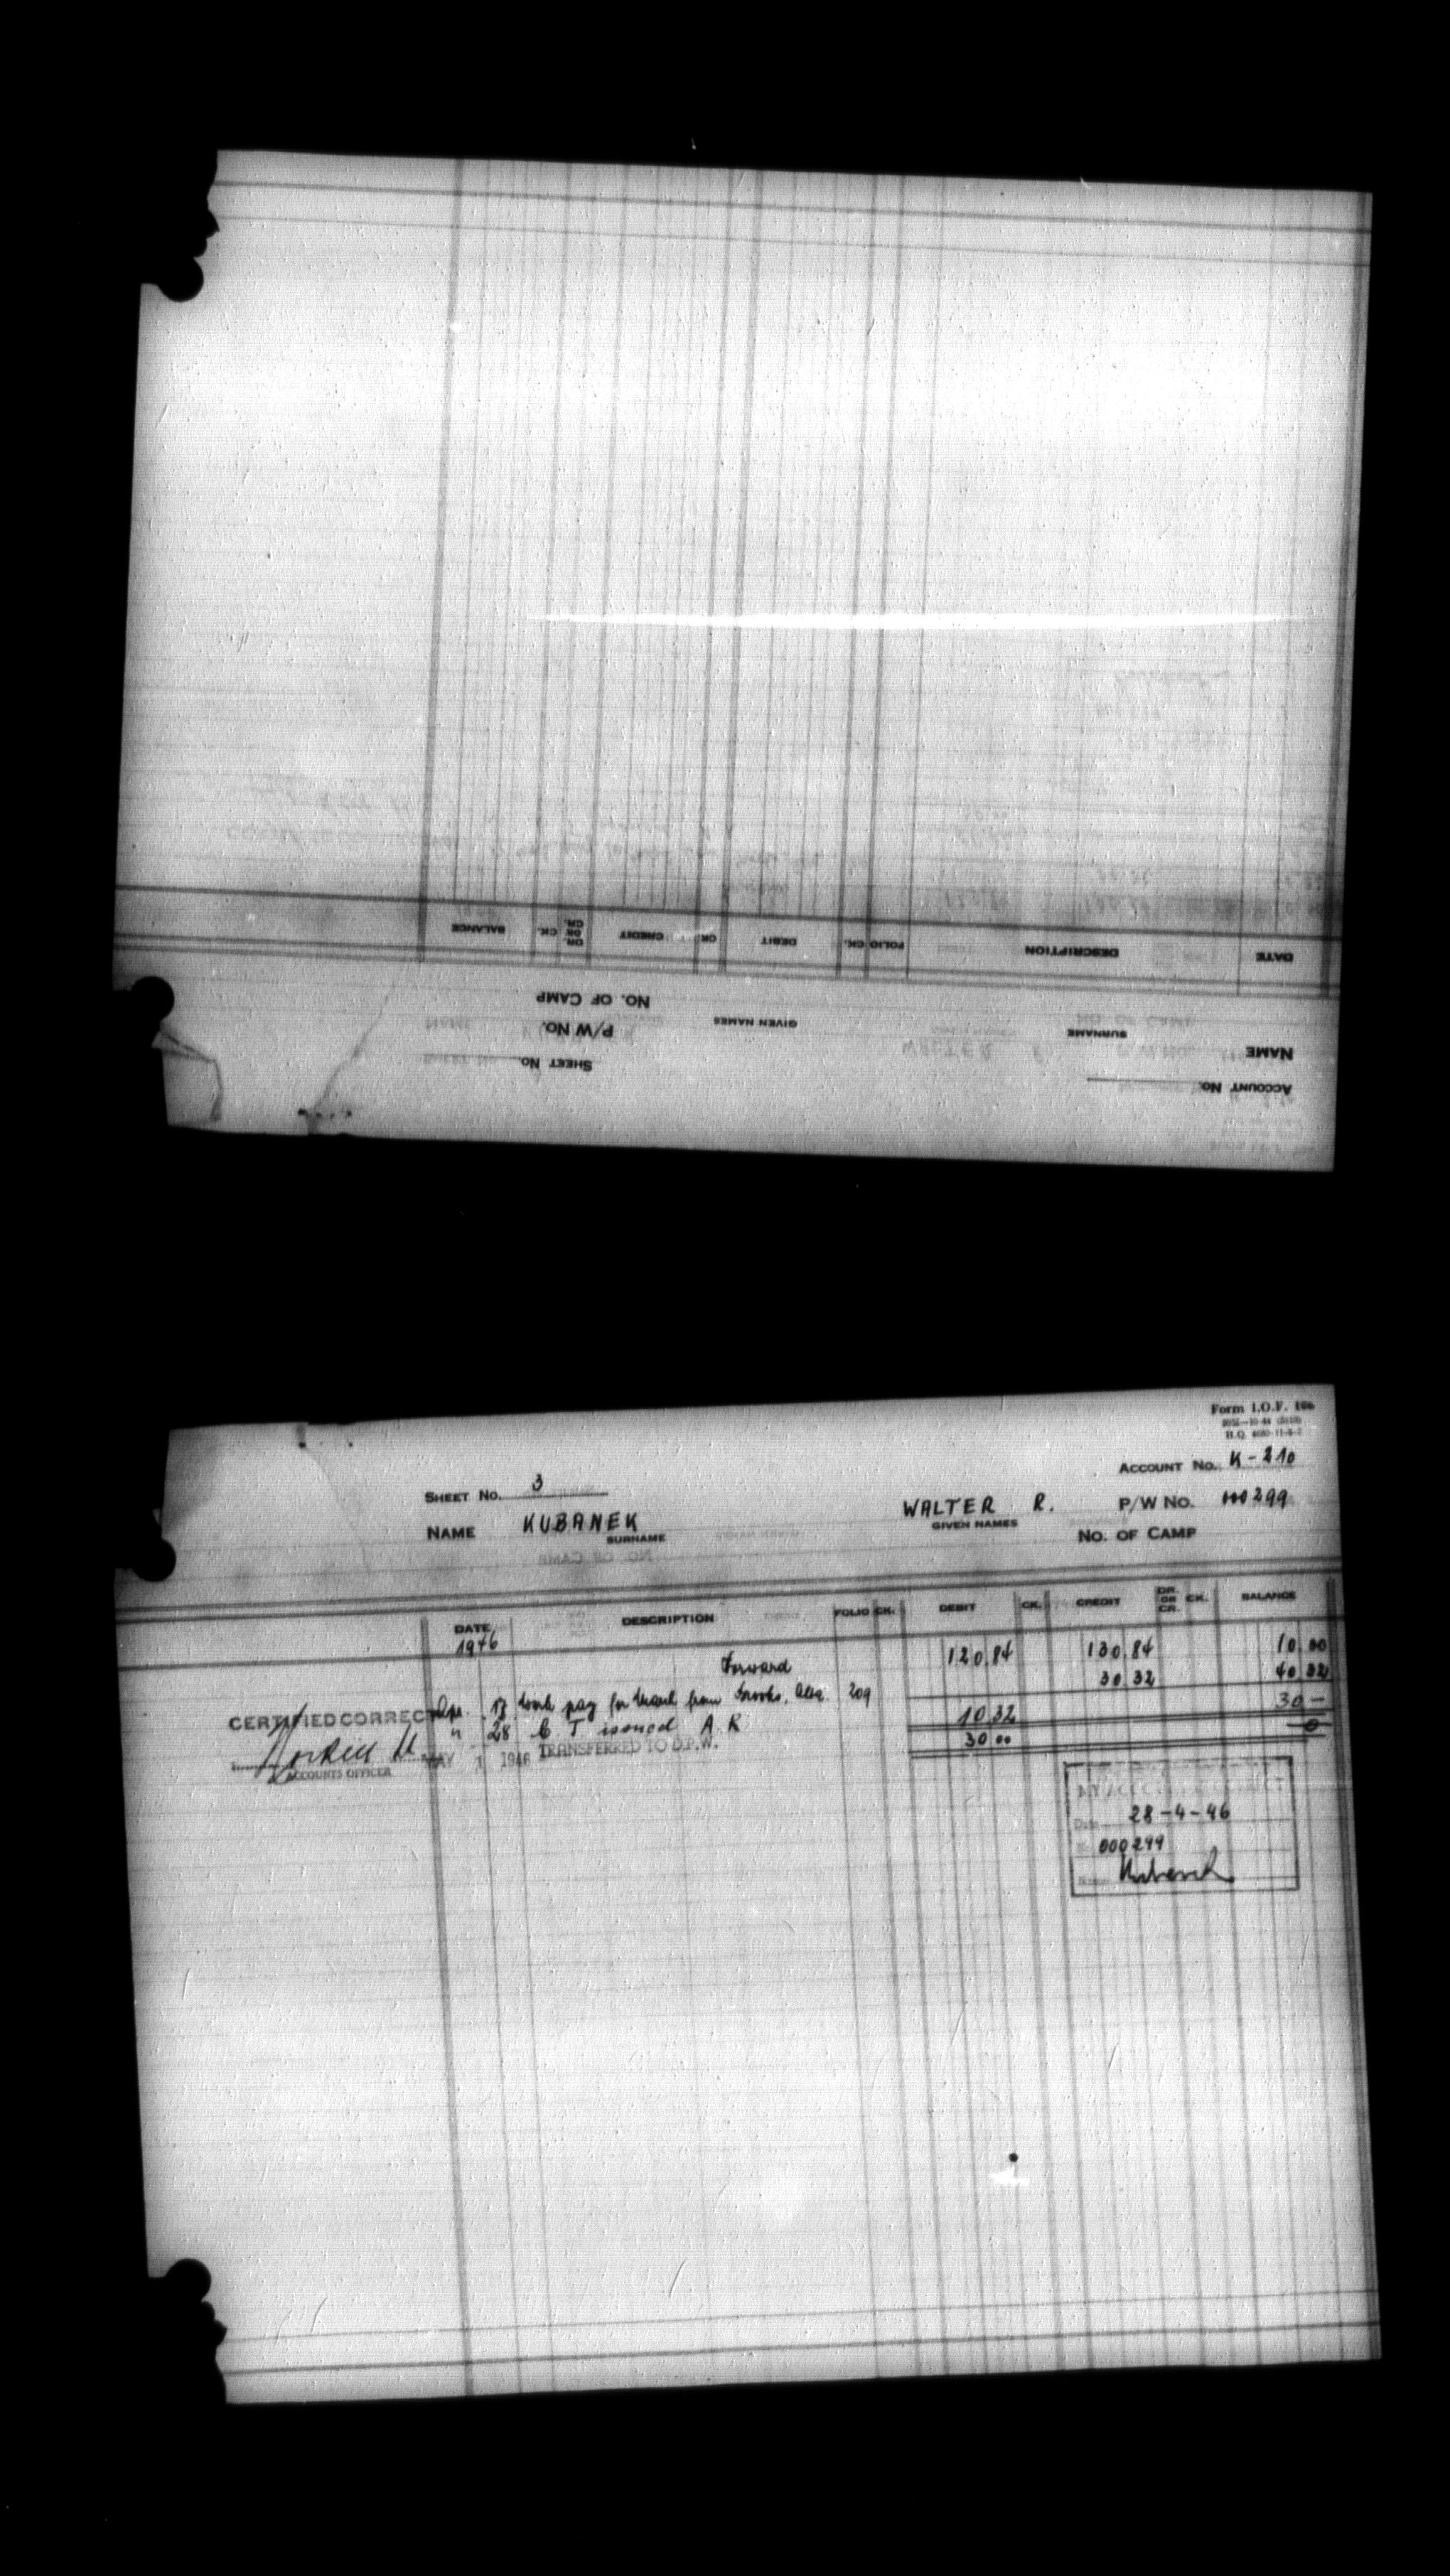 ACCOUNT No.
SHEET No.
NAME
SURNAME
GIVEN NAMES
P/W No.
NO. OF CAMP
DATE DESCRIPTION FOLIO CK. DEBIT CREDIT DR. OR CR. CK. BALANCE
Form I.O.F. 106
ACCOUNT No. K-210
SHEET No. 3
NAME KUBANEK WALTER R. P/W No. 000299
SURNAME GIVEN NAMES NO. OF CAMP
DATE DESCRIPTION FOLIO CK. DEBIT CK. CREDIT DR. OR CR. CK. BALANCE
1946
Forward 120.84 130.84 10.00
Apr. 17 work pay for March from Brooks, Alta. 209 30.32 40.32
CERTIFIED CORRECT
" 28 C T issued A R 10.32 30 —
ACCOUNTS OFFICER
MAY 1 1946 TRANSFERRED TO D.P.W. 30.00 0
MY ACCOUNT
Date 28-4-46
000299
Name Kubanek